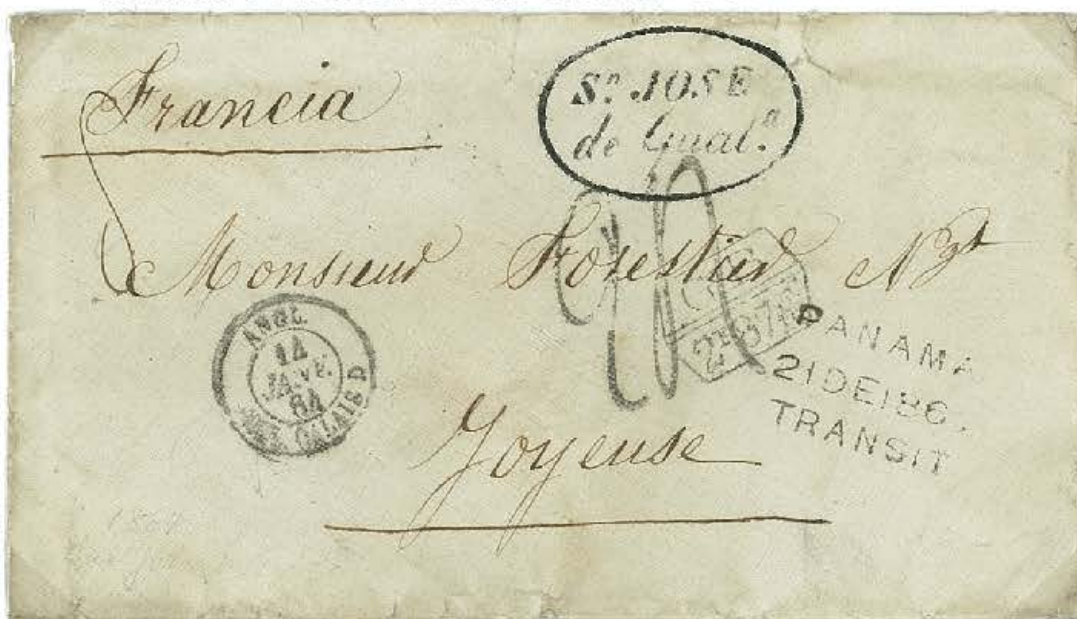 Francia
Sn. JOSE
de Guata.
Monsieur Forestier Nt
GB
2F87 5/10
ANGL.
14
JANV.
64
AMB. CALAIS D
PANAMA
21 DE 186
TRANSIT
Joyeuse